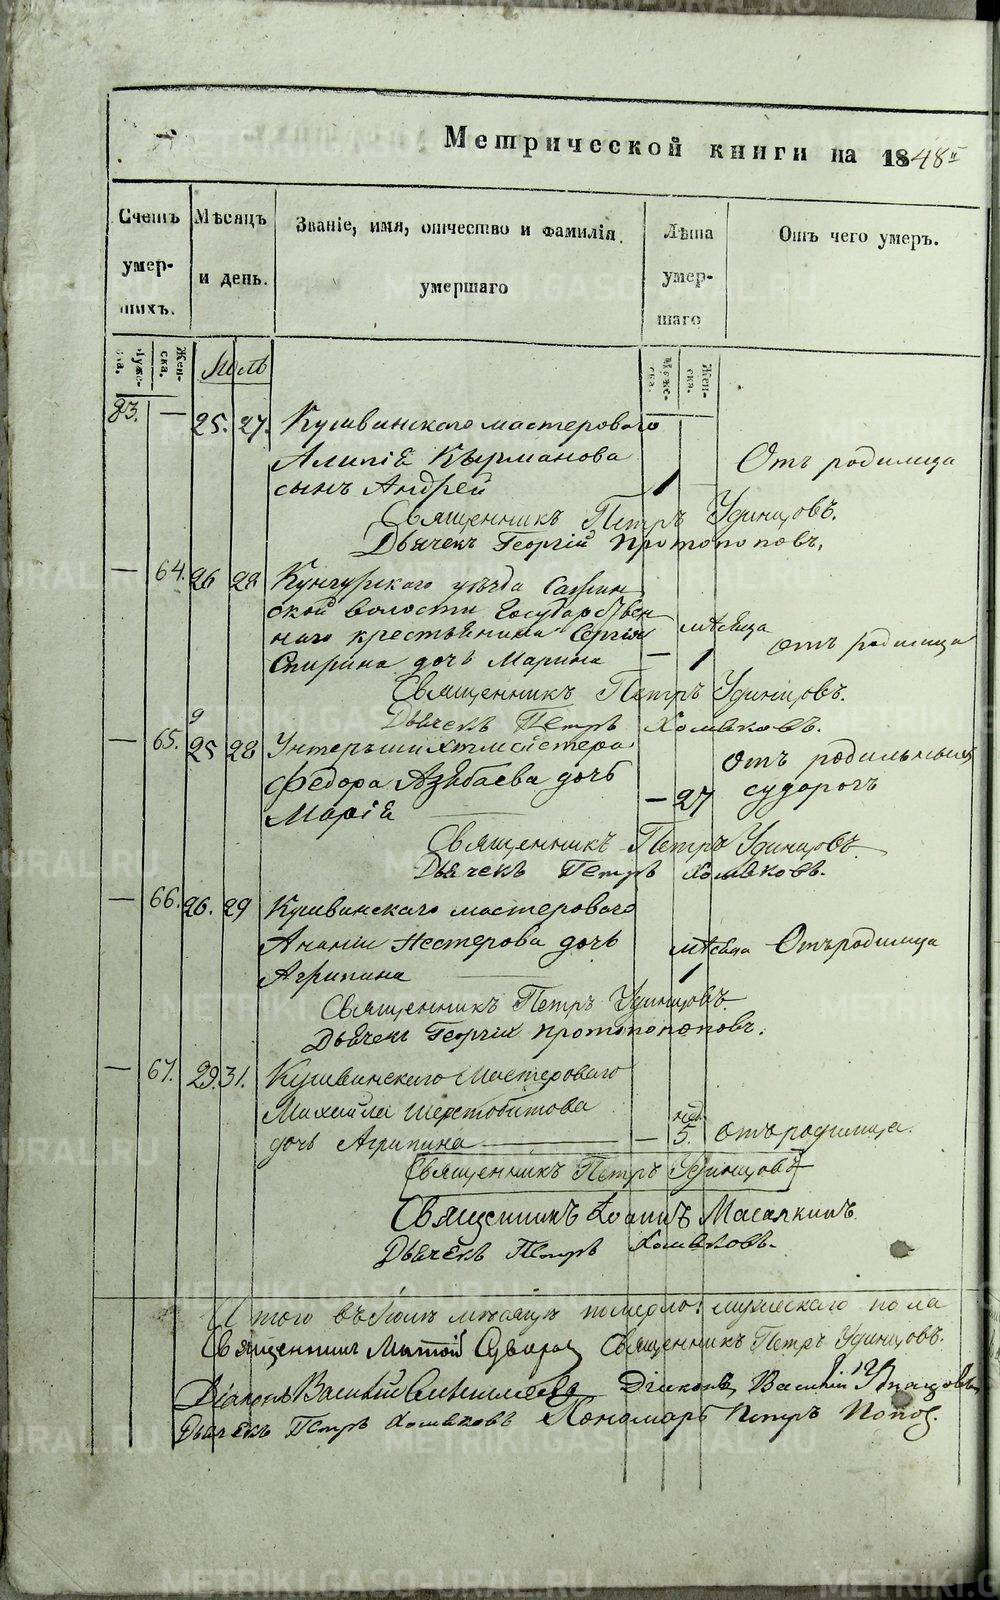 Метрической книги на 1848й
Счетъ умер- шихъ.
Мѣсяцъ и день.
Званіе, имя, отчество и фамилія умершаго
Лѣта умер- шаго
Отъ чего умеръ.
Муже- ска.
Жен- ска.
Іюль
Муже- ска.
Жен- ска.
83. — 25. 27. Кушвинскаго мастероваго
Алипія Кырманова
Отъ родимца
сынъ Андрей 1
Священникъ Петръ Удинцовъ.
Дьячекъ Георгій Протопоповъ.
— 64. 26 28 Кунгурскаго уѣзда Сажин
ской волости Государствен
наго крестьянина Сергія мѣсяца
отъ родимца
Спирина дочь Марина — 1
Священникъ Петръ Удинцовъ.
Дьячекъ Петръ Хомяковъ.
— 65. 25 28 Унтеръшихтмейстера
Отъ родильныхъ
Федора Азябаева дочь
— 27 судорогъ
Марія
Священникъ Петръ Удинцовъ
Дьячекъ Петръ Хомяковъ.
— 66. 26. 29 Кушвинскаго мастероваго
Ананіи Нестерова дочь мѣсяца Отъ родимца
Агрипина 1
Священникъ Петръ Удинцовъ
Дьячекъ Георгій Протопоповъ.
— 67. 29. 31. Кушвинскаго Мастероваго
Михайла Шерстобитова нед.
дочь Агрипина — 5. отъ родимца.
Священникъ Петръ Удинцовъ
Священникъ Іоаннъ Масалкинъ
Дьячекъ Петръ Хомяковъ.
Итого въ Іюлѣ мѣсяцѣ померло: мужескаго пола
Священникъ Священникъ Петръ Удинцовъ. 12
Діаконъ Василій Діаконъ Василій
Дьячекъ Петръ Хомяковъ Пономарь Петръ Поповъ.
METRIKI.GASO-URAL.RU